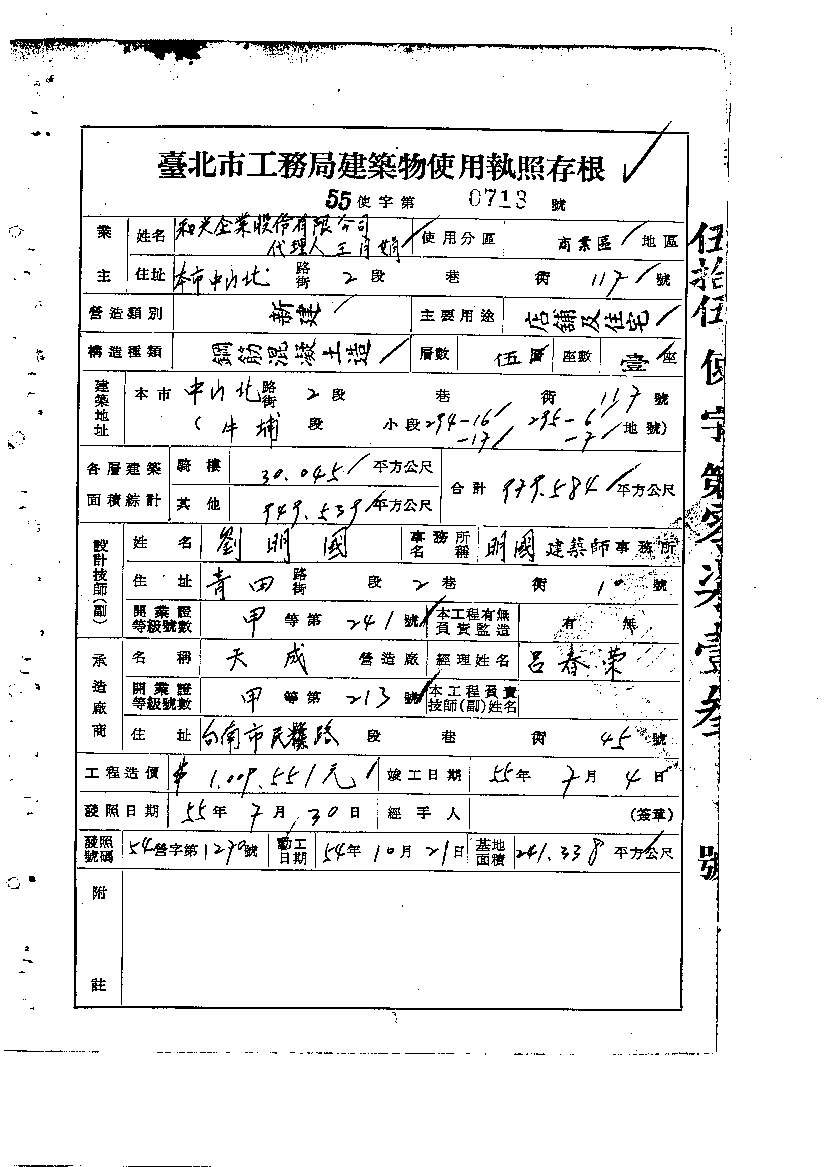 臺北市工務局建築物使用執照存根
55使字第 0713 號
業主 姓名 和光企業股份有限公司 代理人 王肖娟 使用分區 商業區 地區
住址 本市中山北 路街 2 段 巷 街 117 號
營造類別 新建 主要用途 店舖及住宅
構造種類 鋼筋混凝土造 層數 伍層 座數 壹座
建築地址 本市 中山北 路街 2 段 巷 街 117 號
(牛埔 段 小段 294-16 295-6 地號)
-17 -7
各層建築面積綜計 騎樓 30.045 平方公尺 合計 979.584 平方公尺
其他 949.539 平方公尺
設計技師(副) 姓名 劉明國 事務所名稱 明國 建築師事務所
住址 青田 路街 段 2 巷 街 10 號
開業證等級號數 甲 等第 241 號 本工程有無負責監造 有 無
承造廠商 名稱 天成 營造廠 經理姓名 呂春榮
開業證等級號數 甲 等第 213 號 本工程負責技師(副)姓名
住址 台南市民權路 段 巷 街 45 號
工程造價 $1,009,551元 竣工日期 55年 7月 4日
發照日期 55年 7月 30日 經手人 (簽章)
發照號碼 54營字第1270號 動工日期 54年 10月 21日 基地面積 241.338 平方公尺
附註
伍拾伍使字第零柒壹叁號